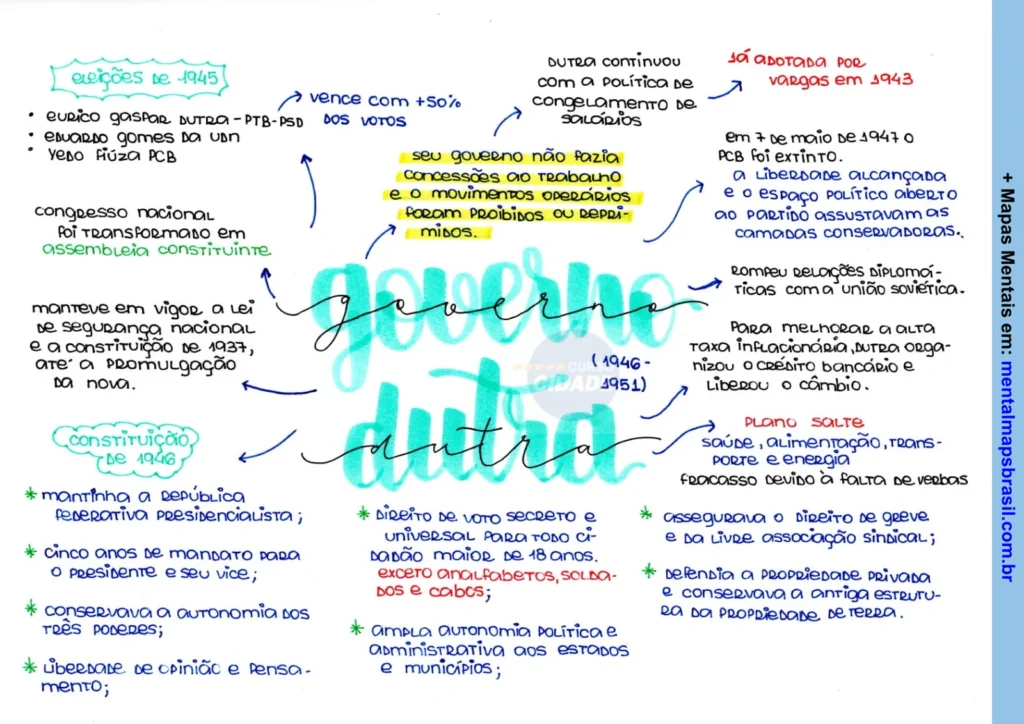 eleições de 1945
• eurico gaspar dutra - PTB-PSD
• eduardo gomes da UDN
• yedo fiúza PCB
vence com +50%
dos votos
dutra continuou
com a política de
congelamento de
salários
já adotada por
vargas em 1943
seu governo não fazia
concessões ao trabalho
e o movimentos operários
foram proibidos ou repri-
midos.
em 7 de maio de 1947 o
PCB foi extinto.
a liberdade alcançada
e o espaço político aberto
ao partido assustavam as
camadas conservadoras.
congresso nacional
foi transformado em
assembleia constituinte
rompeu relações diplomá-
ticas com a união soviética.
manteve em vigor a lei
de segurança nacional
e a constituição de 1937,
até a promulgação
da nova.
governo
governo
dutra
dutra
(1946-
1951)
CURSO
CIDADE
para melhorar a alta
taxa inflacionária, dutra orga-
nizou o crédito bancário e
liberou o câmbio.
plano salte
saúde, alimentação, trans-
porte e energia
fracasso devido à falta de verbas
constituição
de 1946
* mantinha a república
federativa presidencialista;
* cinco anos de mandato para
o presidente e seu vice;
* conservava a autonomia dos
três poderes;
* liberdade de opinião e pensa-
mento;
* direito de voto secreto e
universal para todo ci-
dadão maior de 18 anos.
exceto analfabetos, solda-
dos e cabos;
* ampla autonomia política e
administrativa aos estados
e municípios;
* assegurava o direito de greve
e da livre associação sindical;
* defendia a propriedade privada
e conservava a antiga estrutu-
ra da propriedade de terra.
+ Mapas Mentais em: mentalmapsbrasil.com.br